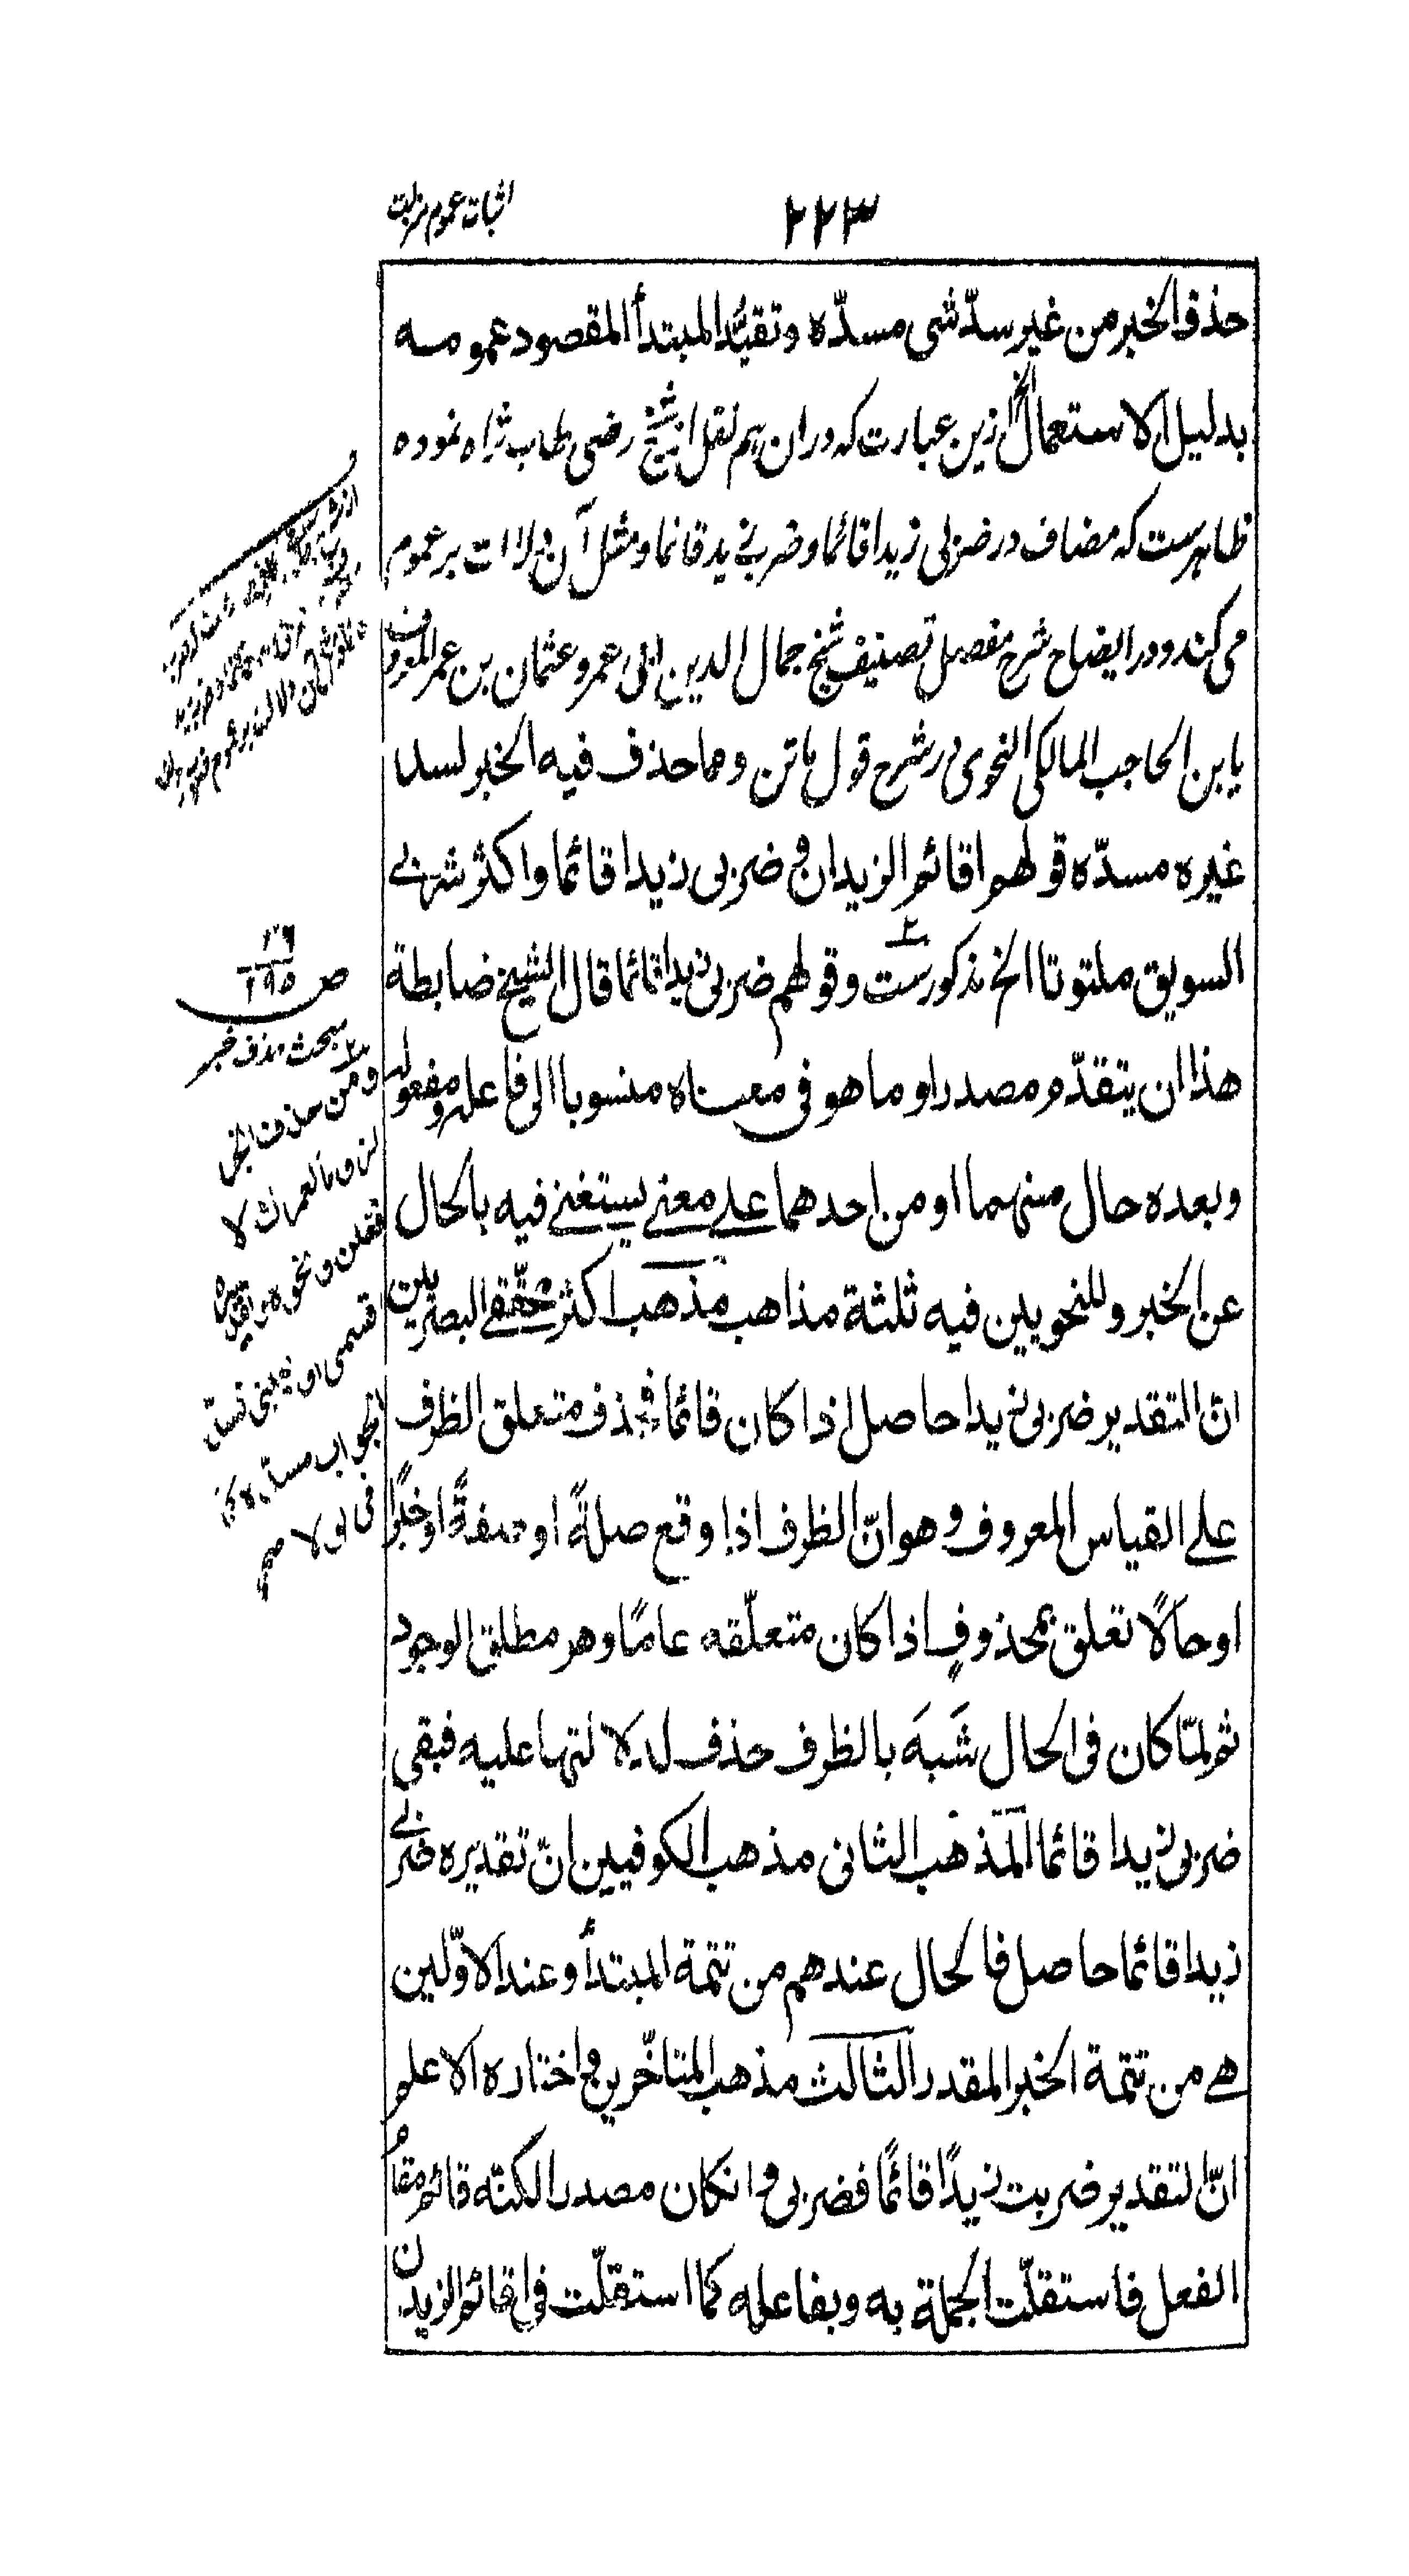 ٢٢٣
اثبات عموم منزلت
حذف الخبر من غير سدّ شی مسدّه وتقيُّد المبتدأ المقصود عمومه
بدليل الاستعمال الخ ازین عبارت که دران هم نقل از شیخ رضی طاب ثراه نموده
ظاهرست که مضاف در ضربی زیدا قائما وضربی زید قائما ومثل آن دلالت بر عموم
می کند ودر ایضاح شرح مفصل تصنیف شیخ جمال الدین ابی عمرو عثمان بن عمر المعروف
بابن الحاجب المالکی النحوی در شرح قول ماتن ومما حذف فيه الخبر لسد
غيره مسدّه قولهم اقائم الزيدان و ضربی زيدا قائما واكثر شربی
السويق ملتوتا الخ مذکورست وقولهم ضربی زيدا قائما قال الشيخ ضابطة
هذا ان يتقدّم مصدر او ما هو فی معناه منسوبا الی فاعله ومفعوله
وبعده حال منهما او من احدهما علی معنی يستغنی فيه بالحال
عن الخبر وللنحويين فيه ثلثة مذاهب مذهب اكثر محقّقی البصريين
انّ التقدير ضربی زيدا حاصل اذا كان قائما فحذف متعلق الظرف
علی القياس المعروف وهو انّ الظرف اذا وقع صلةً او صفةً او خبرًا
او حالًا تعلق بمحذوفٍ اذا كان متعلّقه عامًا وهو مطلق الوجود
ثم لمّا كان فی الحال شَبَهَ بالظرف حذف لدلالتها عليه فبقی
ضربی زيدا قائما المذهب الثانی مذهب الكوفيين انّ تقديره ضربی
زيدا قائما حاصل فالحال عندهم من تتمة المبتدأ وعند الاوّلين
هی من تتمة الخبر المقدر الثالث مذهب المتاخّرين واختاره الاعلم
انّ التقدير ضربت زيدًا قائمًا فضربی وانكان مصدرا لكنّه قائم مقامُ
الفعل فاستقلّت الجملة به وبفاعله كما استقلّت فی اقائم الزيدان
ص ١٩٥
بحث حذف خبر
ومن حذف الخبر
لزوما لعمرك لا
فعلن ونحوه
قسمی او
الجواب مسدّه
فی لولا